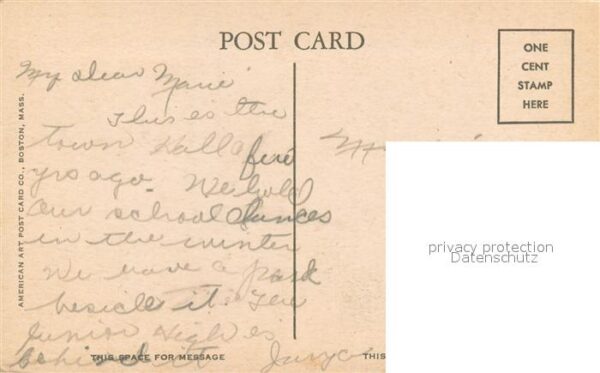 POST CARD
ONE
CENT
STAMP
HERE
My dear Marie
This is the
town Hall a few
yrs ago. We hold
Our school dances
in the winter
We have a park
beside it. The
Junior High is
behind it
AMERICAN ART POST CARD CO., BOSTON, MASS.
THIS SPACE FOR MESSAGE
THIS
privacy protection
Datenschutz